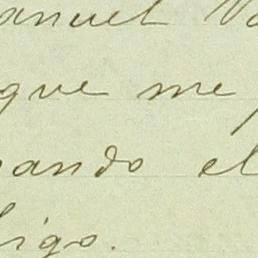 anuel Va
que me p
ando el
igo.